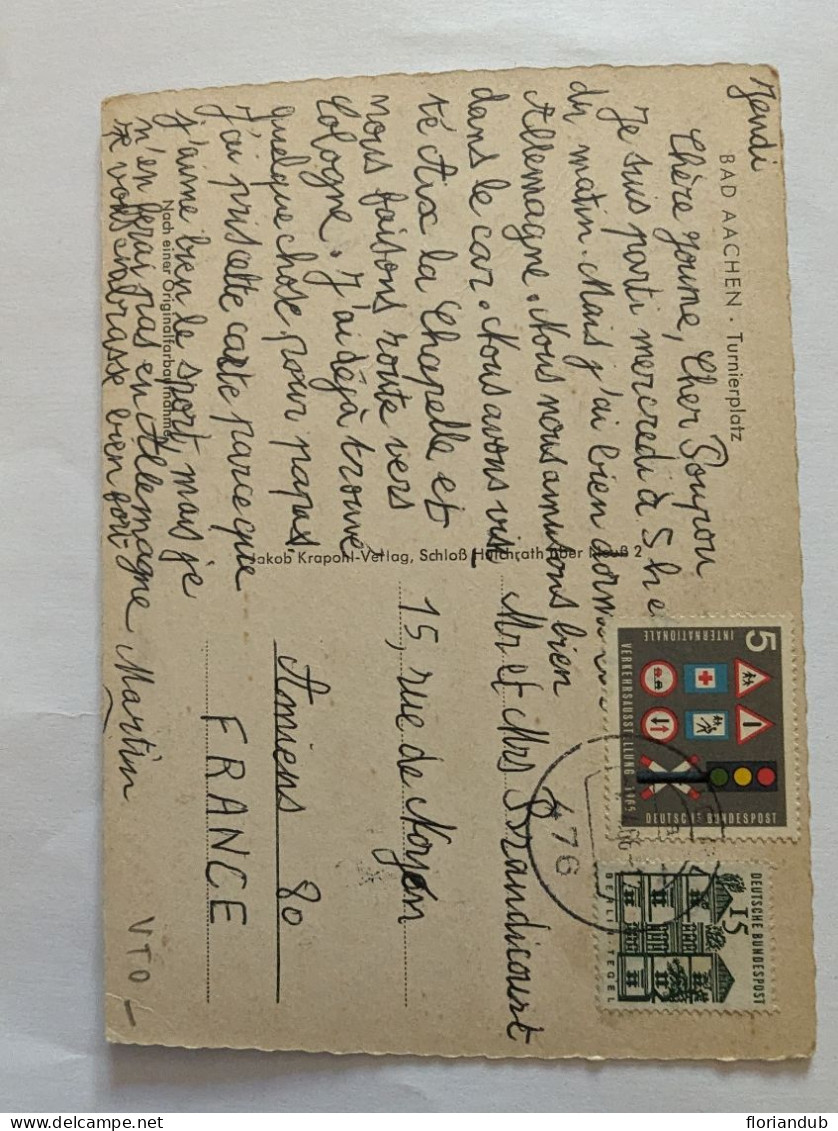 Jeudi
BAD AACHEN · Turnierplatz
Chère gourme, Cher Poupou
Je suis parti mercredi à 5 he
du matin. Mais j'ai bien dorm
Allemagne. Nous nous amusons bien
dans le car. Nous avons visi
té Aix la Chapelle et
nous faisons route vers
Cologne. J'ai déjà trouvé
quelque chose pour papa.
J'ai pris cette carte parce que
j'aime bien le sport, mais je
n'en ferai pas en Allemagne
Je vous embrasse bien fort
Martin
Nach einer Originalfarbaufnahme
Jakob Krapohl-Verlag, Schloß Hülchrath über Neuß 2
Mr et Mrs Brandicourt
15, rue de Noyon
Amiens 80
FRANCE
VTO
5
INTERNATIONALE
VERKEHRSAUSSTELLUNG · 1965
DEUTSCHE BUNDESPOST
476
DEUTSCHE BUNDESPOST
15
BERLIN-TEGEL
floriandub